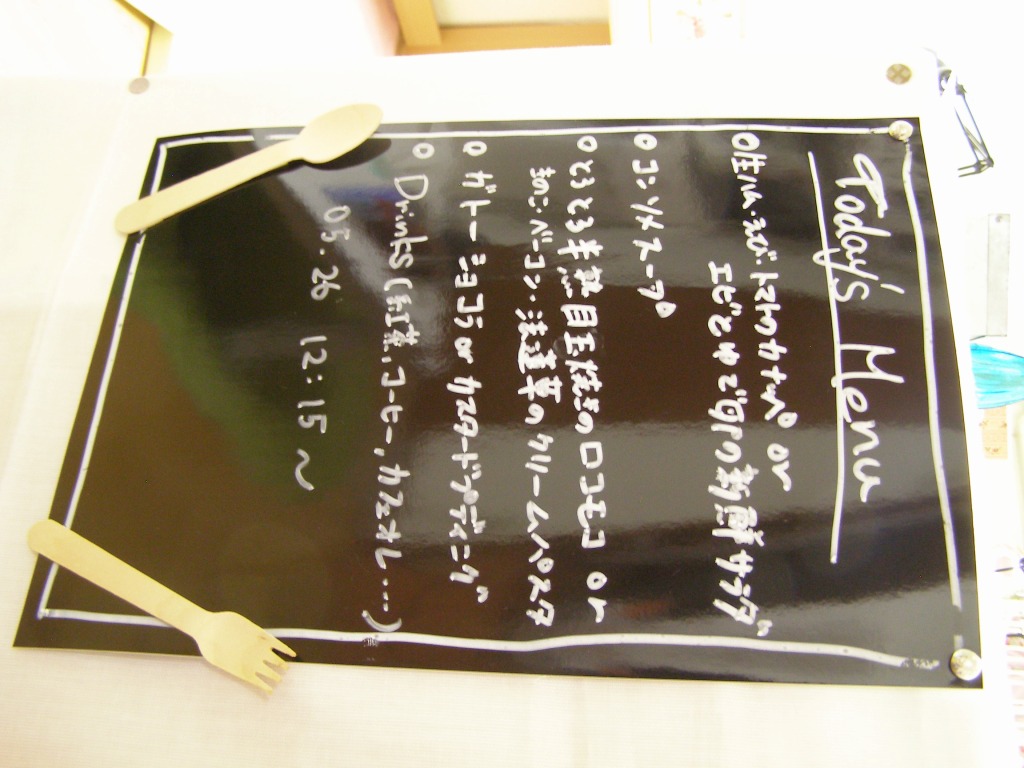 Today's Menu
○生ハム・えび・トマトのカナッペ or
エビとゆで卵の新鮮サラダ
○コンソメスープ
○とろとろ半熟目玉焼きのロコモコ or
きのこ・ベーコン・法蓮草のクリームパスタ
○ガトーショコラ or カスタードプディング
○Drinks (紅茶,コーヒー,カフェオレ…)
05.26 12:15〜